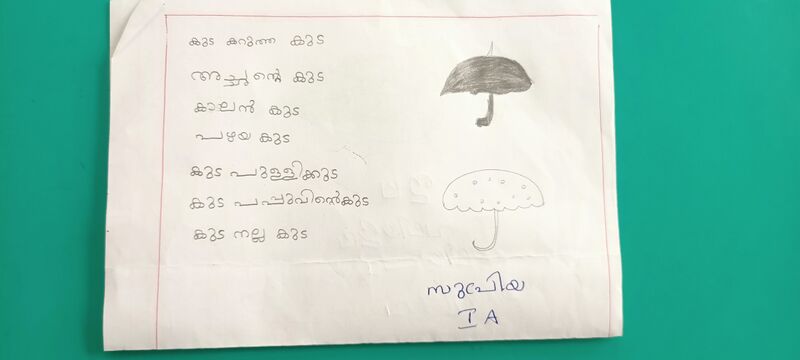 കുട കറുത്ത കുട
അച്ഛന്റെ കുട
കാലൻ കുട
പഴയ കുട
കുട പുള്ളിക്കുട
കുട പപ്പുവിൻെറകുട
കുട നല്ല കുട
സുപ്രിയ
I A